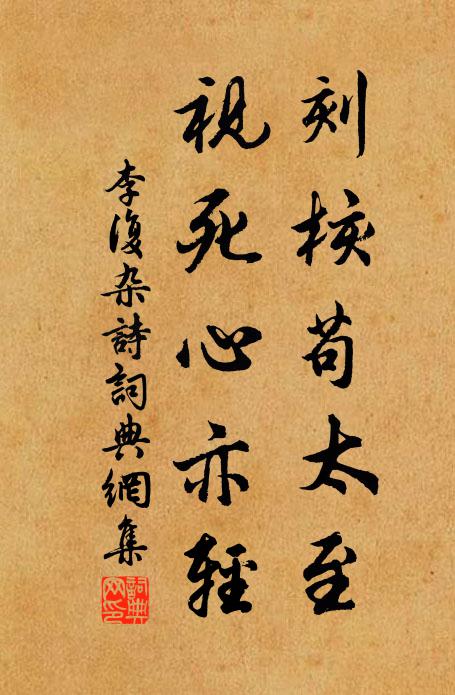 刻核苟太至
視死心亦輕
李復杂詩詞典網集
詞典
网印